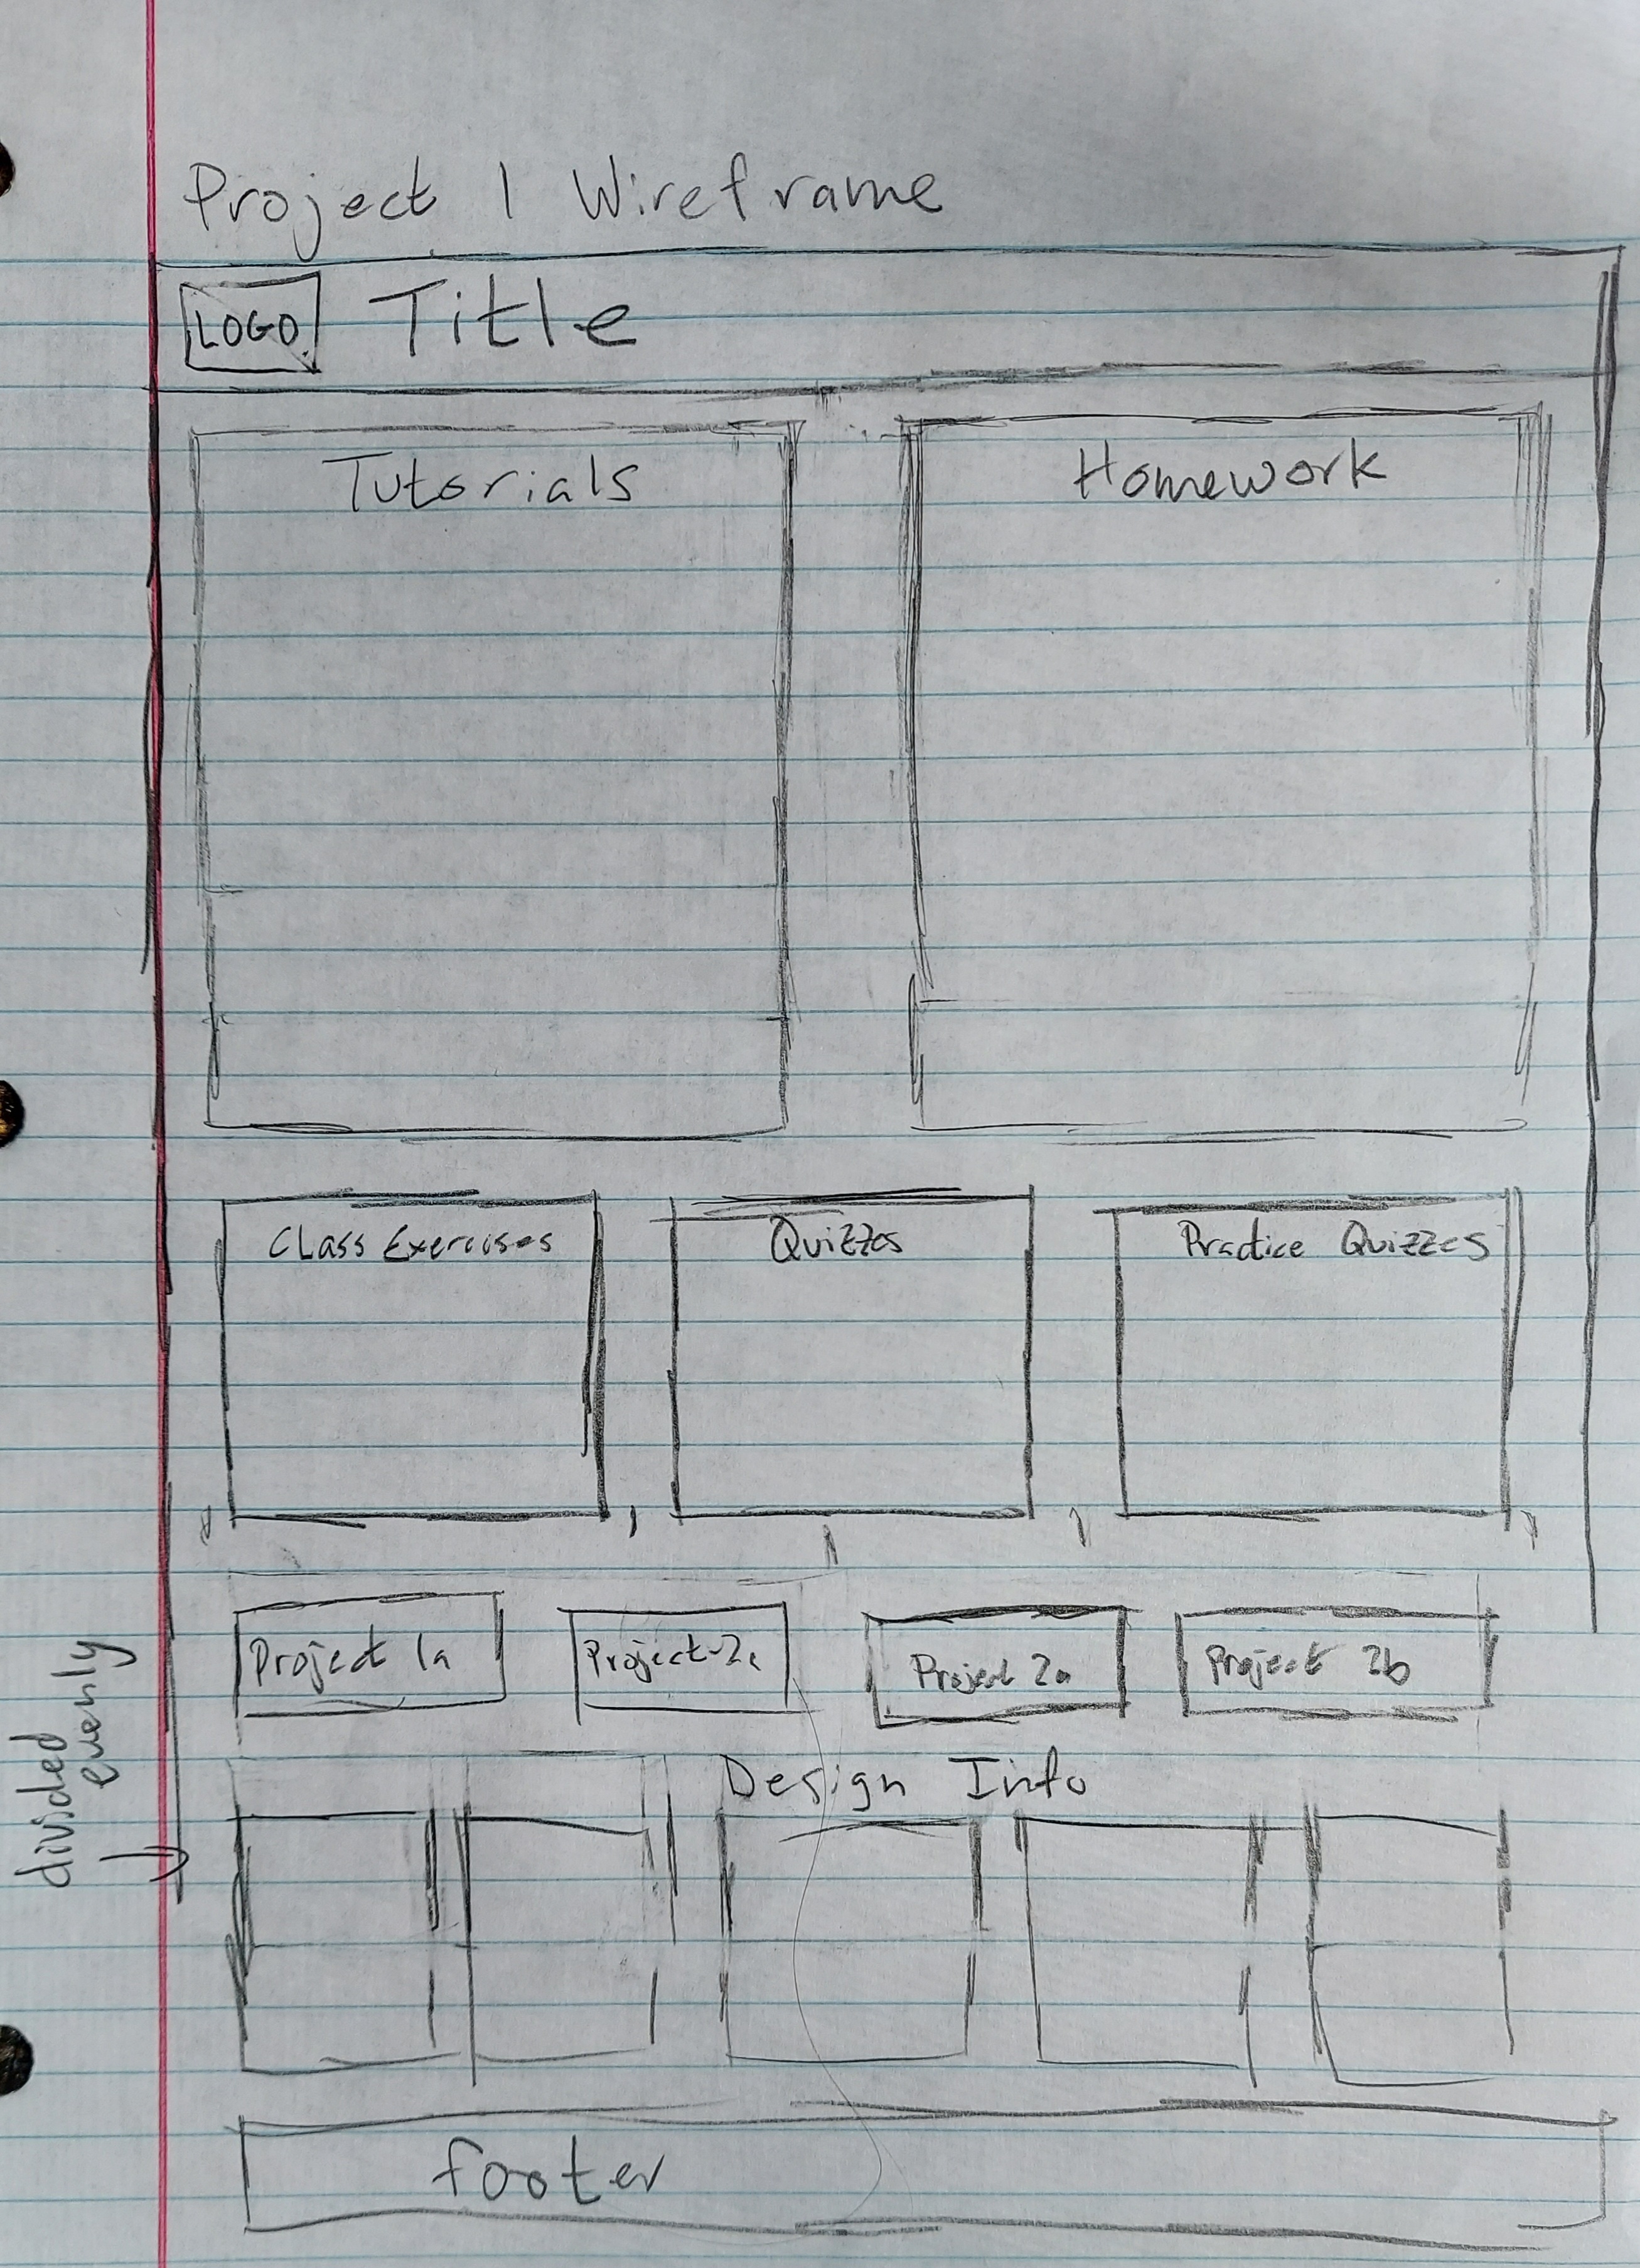 Project 1 Wireframe
LOGO Title
Tutorials Homework
Class Exercises Quizzes Practice Quizzes
Project 1a Project Project 2a Project 2b
divided
evenly
Design Info
footer